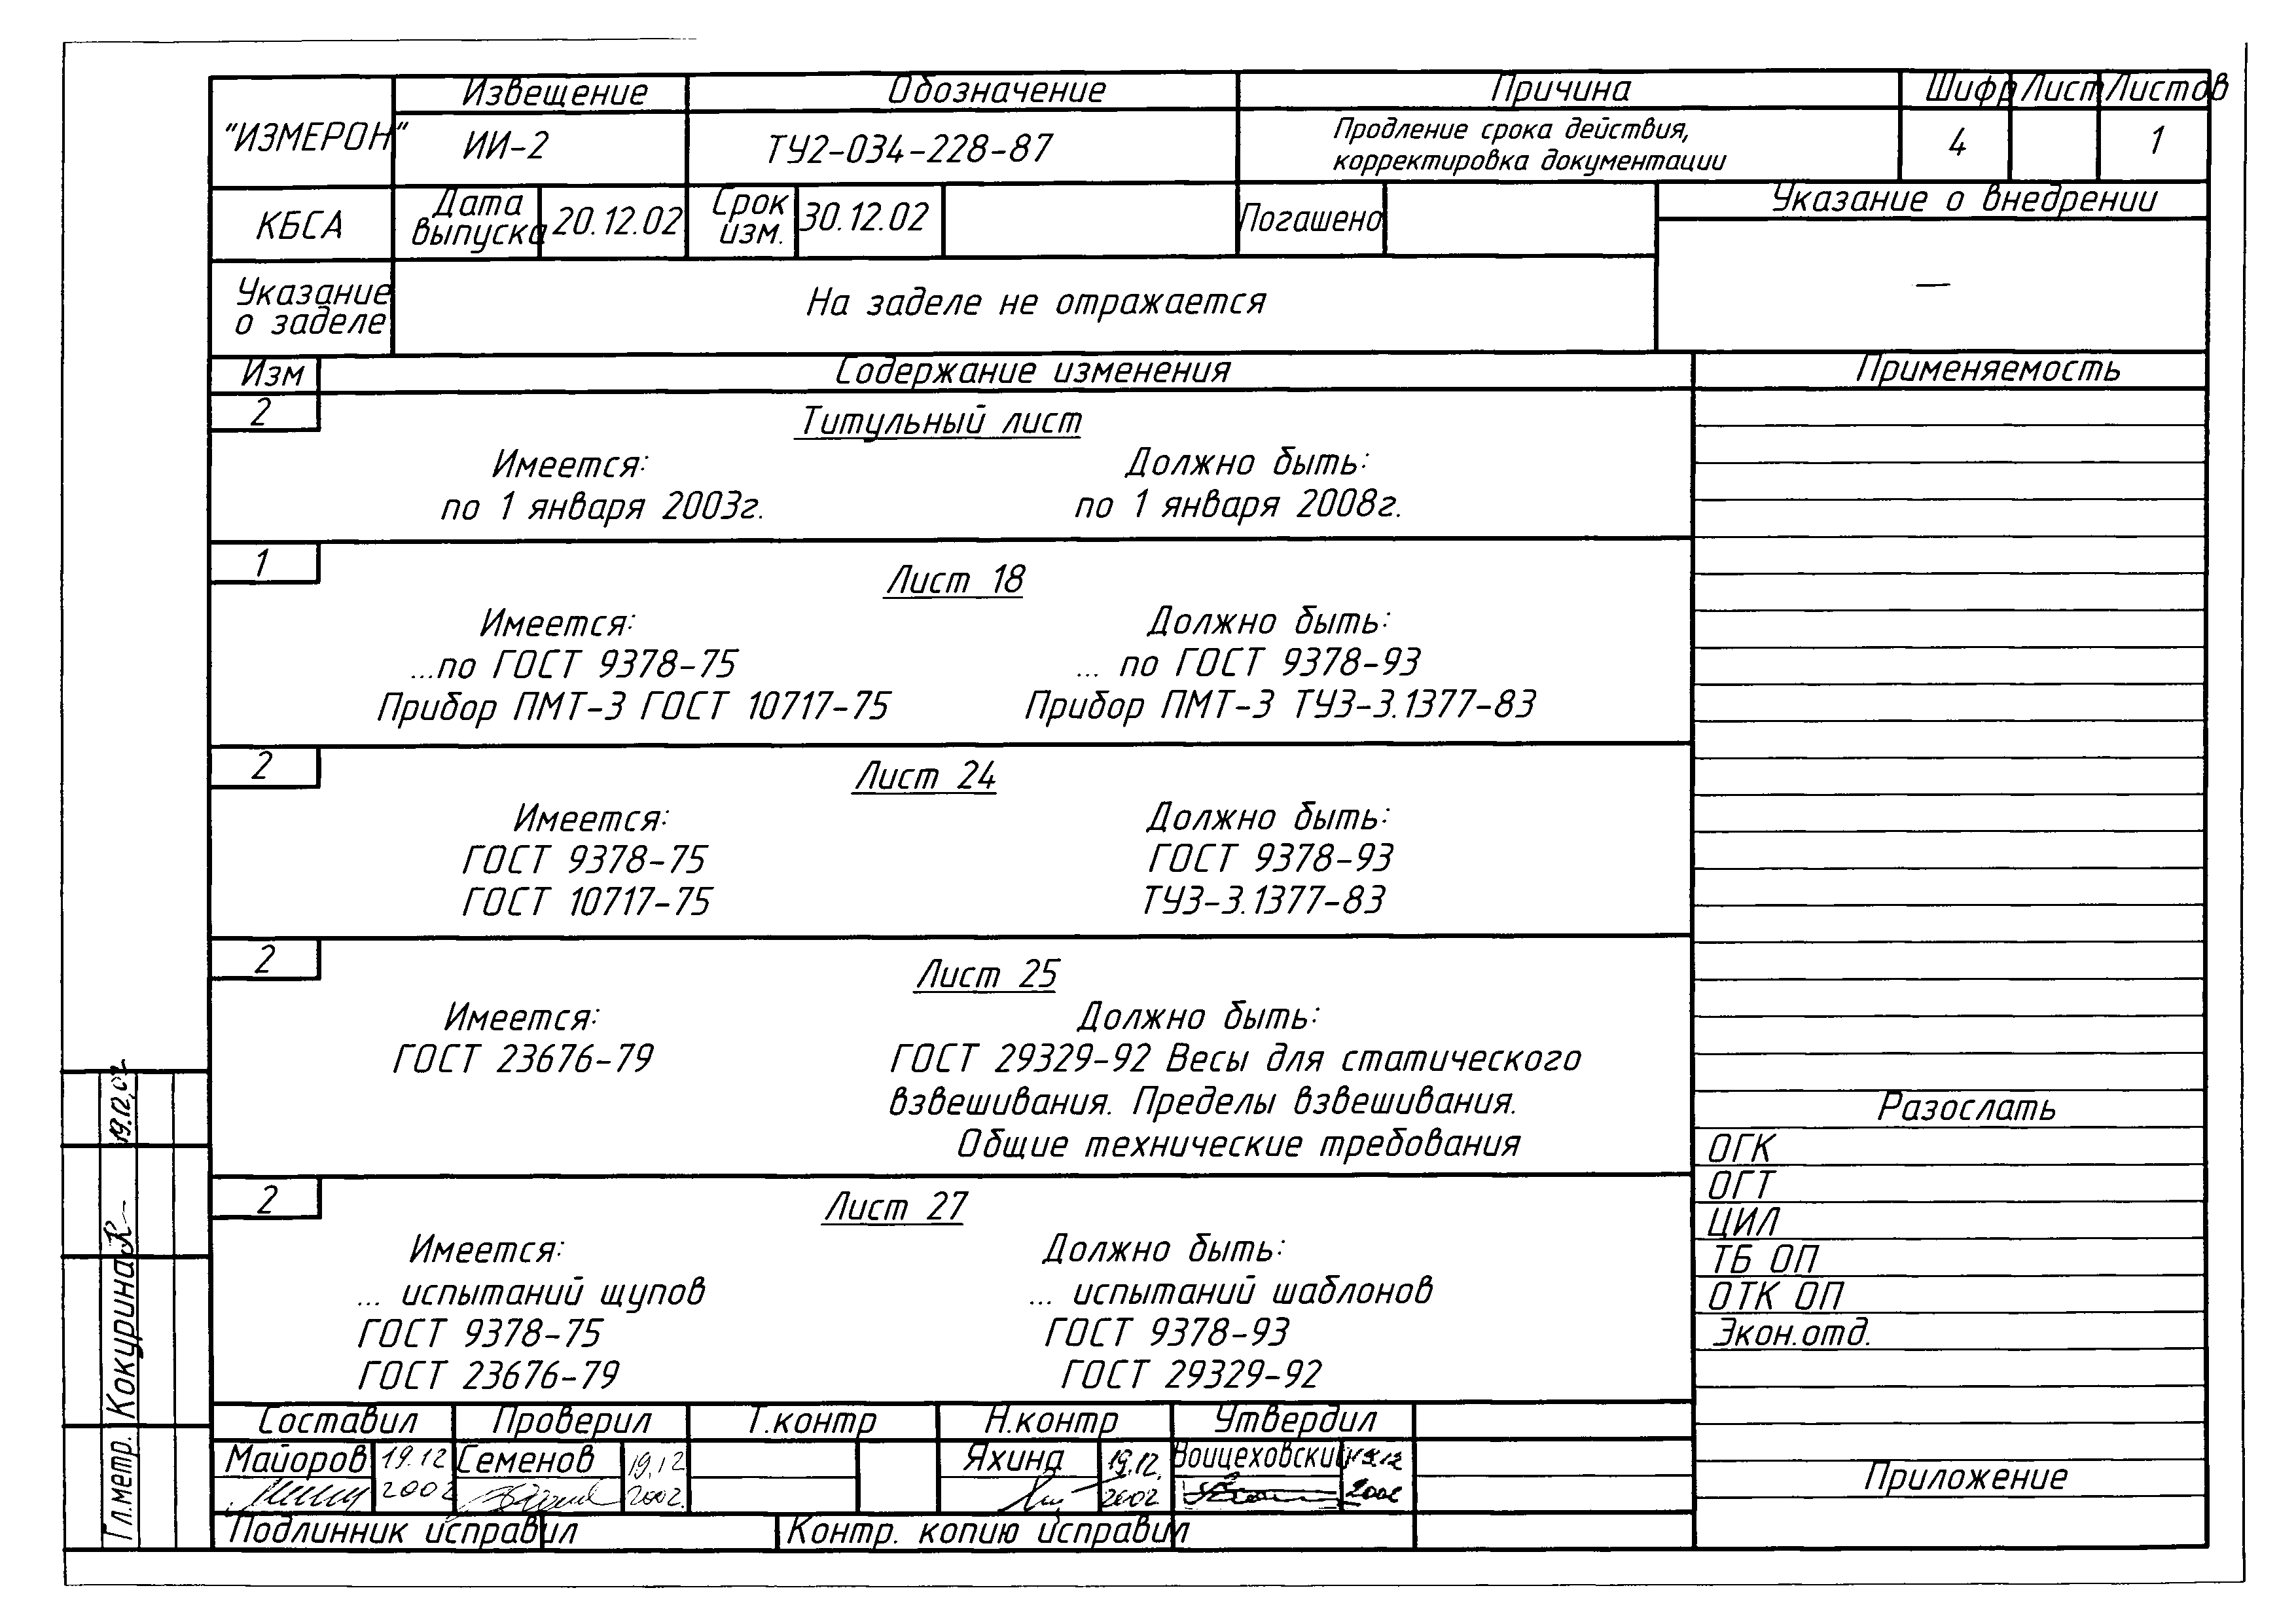 "ИЗМЕРОН"
Извещение
Обозначение
Причина
Шифр
Лист
Листов
ИИ-2
ТУ2-034-228-87
Продление срока действия,
корректировка документации
4
1
КБСА
Дата
выпуска
20.12.02
Срок
изм.
30.12.02
Погашено
Указание о внедрении
—
Указание
о заделе
На заделе не отражается
Изм
Содержание изменения
Применяемость
2
Титульный лист
Имеется:
Должно быть:
по 1 января 2003г.
по 1 января 2008г.
1
Лист 18
Имеется:
Должно быть:
...по ГОСТ 9378-75
... по ГОСТ 9378-93
Прибор ПМТ-3 ГОСТ 10717-75
Прибор ПМТ-3 ТУ3-3.1377-83
2
Лист 24
Имеется:
Должно быть:
ГОСТ 9378-75
ГОСТ 9378-93
ГОСТ 10717-75
ТУ3-3.1377-83
2
Лист 25
Имеется:
Должно быть:
ГОСТ 23676-79
ГОСТ 29329-92 Весы для статического
взвешивания. Пределы взвешивания.
Общие технические требования
Разослать
ОГК
ОГТ
ЦИЛ
ТБ ОП
ОТК ОП
Экон.отд.
2
Лист 27
Имеется:
Должно быть:
... испытаний щупов
... испытаний шаблонов
ГОСТ 9378-75
ГОСТ 9378-93
ГОСТ 23676-79
ГОСТ 29329-92
Составил
Проверил
Т.контр
Н.контр
Утвердил
Майоров
19.12
2002
Семенов
19.12
2002.
Яхина
19.12.
2002
Воищеховский
19.12
2002
Приложение
Подлинник исправил
Контр. копию исправил
Гл.метр.
Кокурина
19.12.02